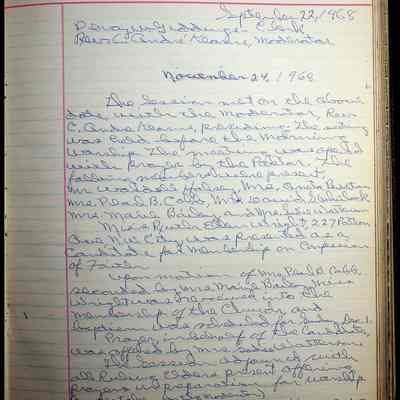 September 22, 1968
Clerk
Rev. C. André Kearns, Moderator
November 24, 1968
The Session met on the above
date with the Moderator, Rev.
C. Andre Kearns, presiding. The meeting
was held before the Morning
Worship. The meeting was opened
with prayer by the Pastor. The
following members were present,
Mr. Waddell Halsey, Mrs.
Mrs. Pearl B. Cobb, Mrs.
Mrs. Marie Bailey and Mrs.
Miss Ruth Ellen Wright, 227 Patton
Ave. was presented as a
Candidate for Membership on Confession
of Faith.
Upon motion of Mrs. Pearl B. Cobb,
seconded by Mrs. Marie Bailey, Miss
Wright was received into the
membership of the Church and
Baptism was scheduled for Sunday, Dec. 1.
Prayer in behalf of the Candidate
was offered by Mrs.
The Session adjourned with
all Ruling Elders present offering
prayers in preparation for worship